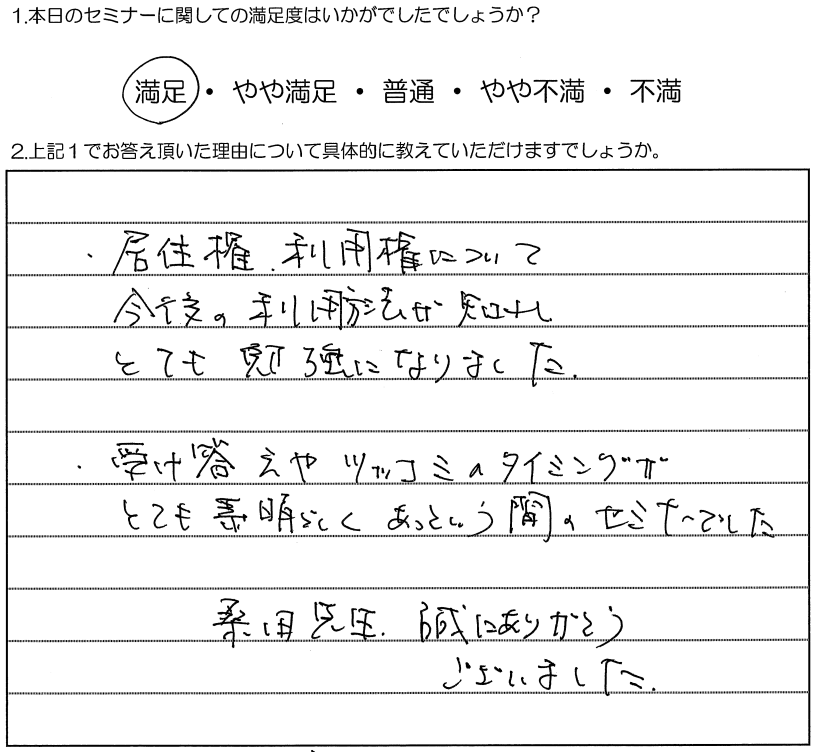 1.本日のセミナーに関しての満足度はいかがでしたでしょうか？
満足・やや満足・普通・やや不満・不満
2.上記１でお答え頂いた理由について具体的に教えていただけますでしょうか。
・居住権、利用権について
今後の利用方法が知れ
とても勉強になりました。
・受け答えやツッコミのタイミングが
とても素晴らしくあっという間のセミナーでした
桑田先生、誠にありがとう
ございました。